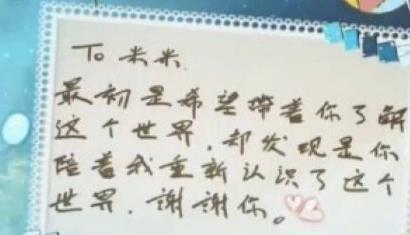 To 米米.
最初是希望带着你了解
这个世界,却发现是你
陪着我重新认识了这个
世界.謝謝你。